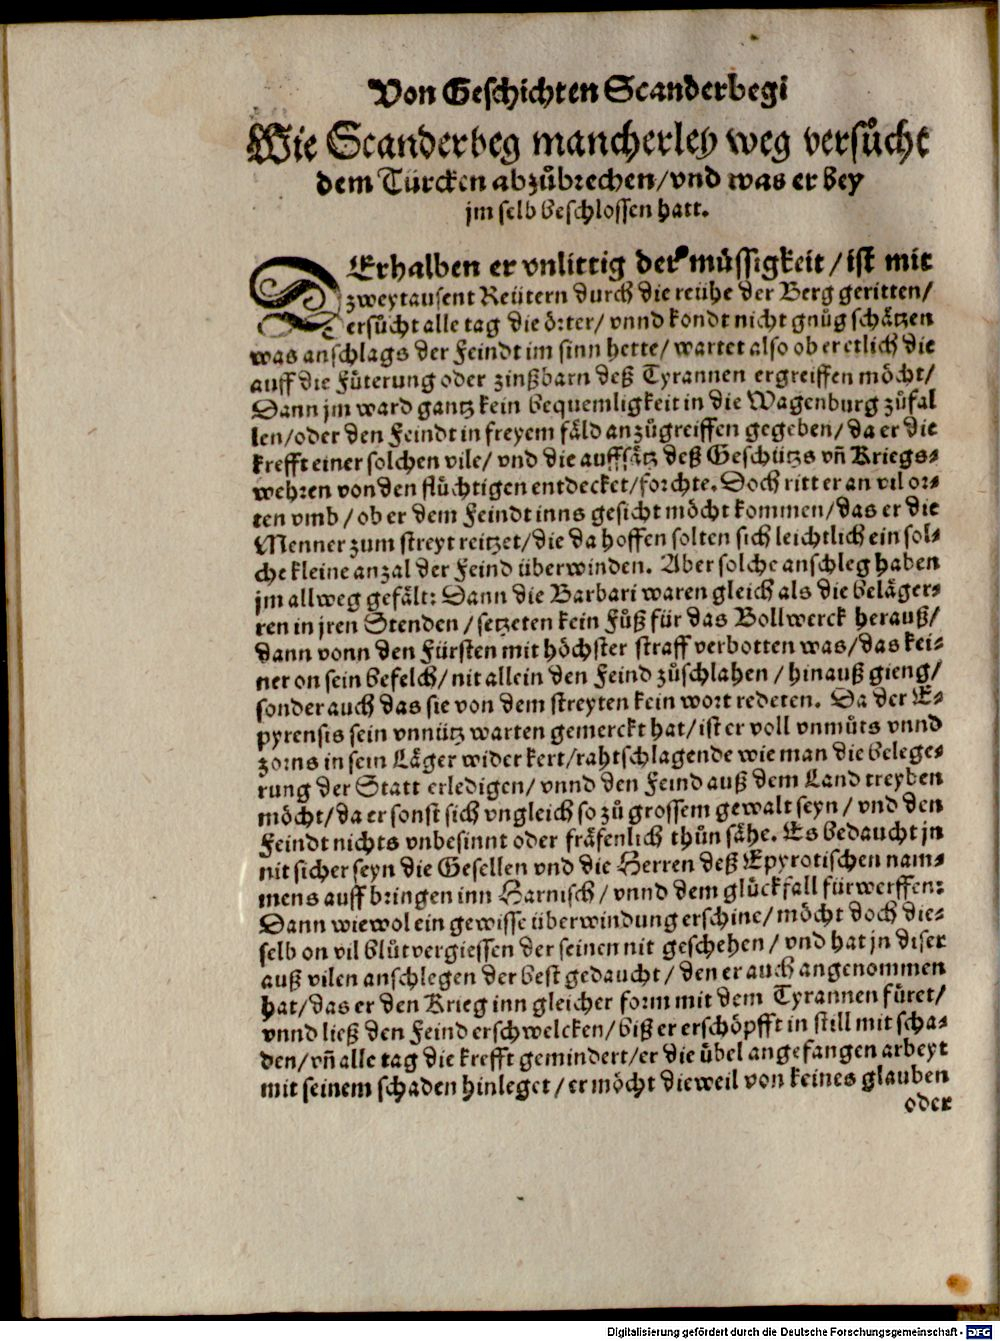 Von Geschichten Scanderbegi
Wie Scanderbeg mancherley weg versůcht
dem Türcken abzůbrechen/vnd was er bey
jm selb beschlossen hatt.
DErhalben er vnlittig der müssigkeit/ist mit
zweytausent Reütern durch die reühe der Berg geritten/
ersůcht alle tag die örter/ vnnd kondt nicht gnůg schätzen
was anschlags der Feindt im sinn hette/ wartet also ob er etlich die
auff die Fůterung oder zinßbarn deß Tyrannen ergreiffen möcht/
Dann jm ward gantz kein bequemligkeit in die Wagenburg zůfal
len/oder den Feindt in freyem fäld anzůgreiffen gegeben/da er die
krefft einer solchen vile/ vnd die auffsätz deß Geschützs vñ Kriegs⸗
wehren von den flüchtigen entdecket/forchte. Doch ritt er an vil or⸗
ten vmb/ob er dem Feindt inns gesicht möcht kommen/das er die
Menner zum streyt reitzet/die da hoffen solten sich leichtlich ein sol⸗
che kleine anzal der Feind überwinden. Aber solche anschleg haben
jm allweg gefält: Dann die Barbari waren gleich als die beläger⸗
ren in jren Stenden/setzeten kein Fůß für das Bollwerck herauß/
dann vonn den Fürsten mit höchster straff verbotten was/das kei⸗
ner on sein befelch/nit allein den Feind zůschlahen/hinauß gieng/
sonder auch das sie von dem streyten kein wort redeten. Da der E⸗
pyrensis sein vnnütz warten gemerckt hat/ist er voll vnmůts vnnd
zorns in sein Läger wider kert/rahtschlagende wie man die belege⸗
rung der Statt erledigen/ vnnd den Feind auß dem Land treyben
möcht/da er sonst sich vngleich so zů grossem gewalt seyn/ vnd den
Feindt nichts vnbesinnt oder fräfenlich thůn sähe. Es bedaucht jn
nit sicher seyn die Gesellen vnd die Herren deß Epyrotischen nam⸗
mens auff bringen inn Harnisch/ vnnd dem glückfall fürwerffen:
Dann wiewol ein gewisse überwindung erschine/ möcht doch die⸗
selb on vil blůtvergiessen der seinen nit geschehen/ vnd hat jn diser
auß vilen anschlegen der best gedaucht/ den er auch angenommen
hat/das er den Krieg inn gleicher form mit dem Tyrannen füret/
vnnd ließ den Feind erschwelcken/biß er erschöpfft in still mit scha⸗
den/vñ alle tag die krefft gemindert/er die übel angefangen arbeyt
mit seinem schaden hinleget/er möcht dieweil von keines glauben
oder
Digitalisierung gefördert durch die Deutsche Forschungsgemeinschaft - DFG